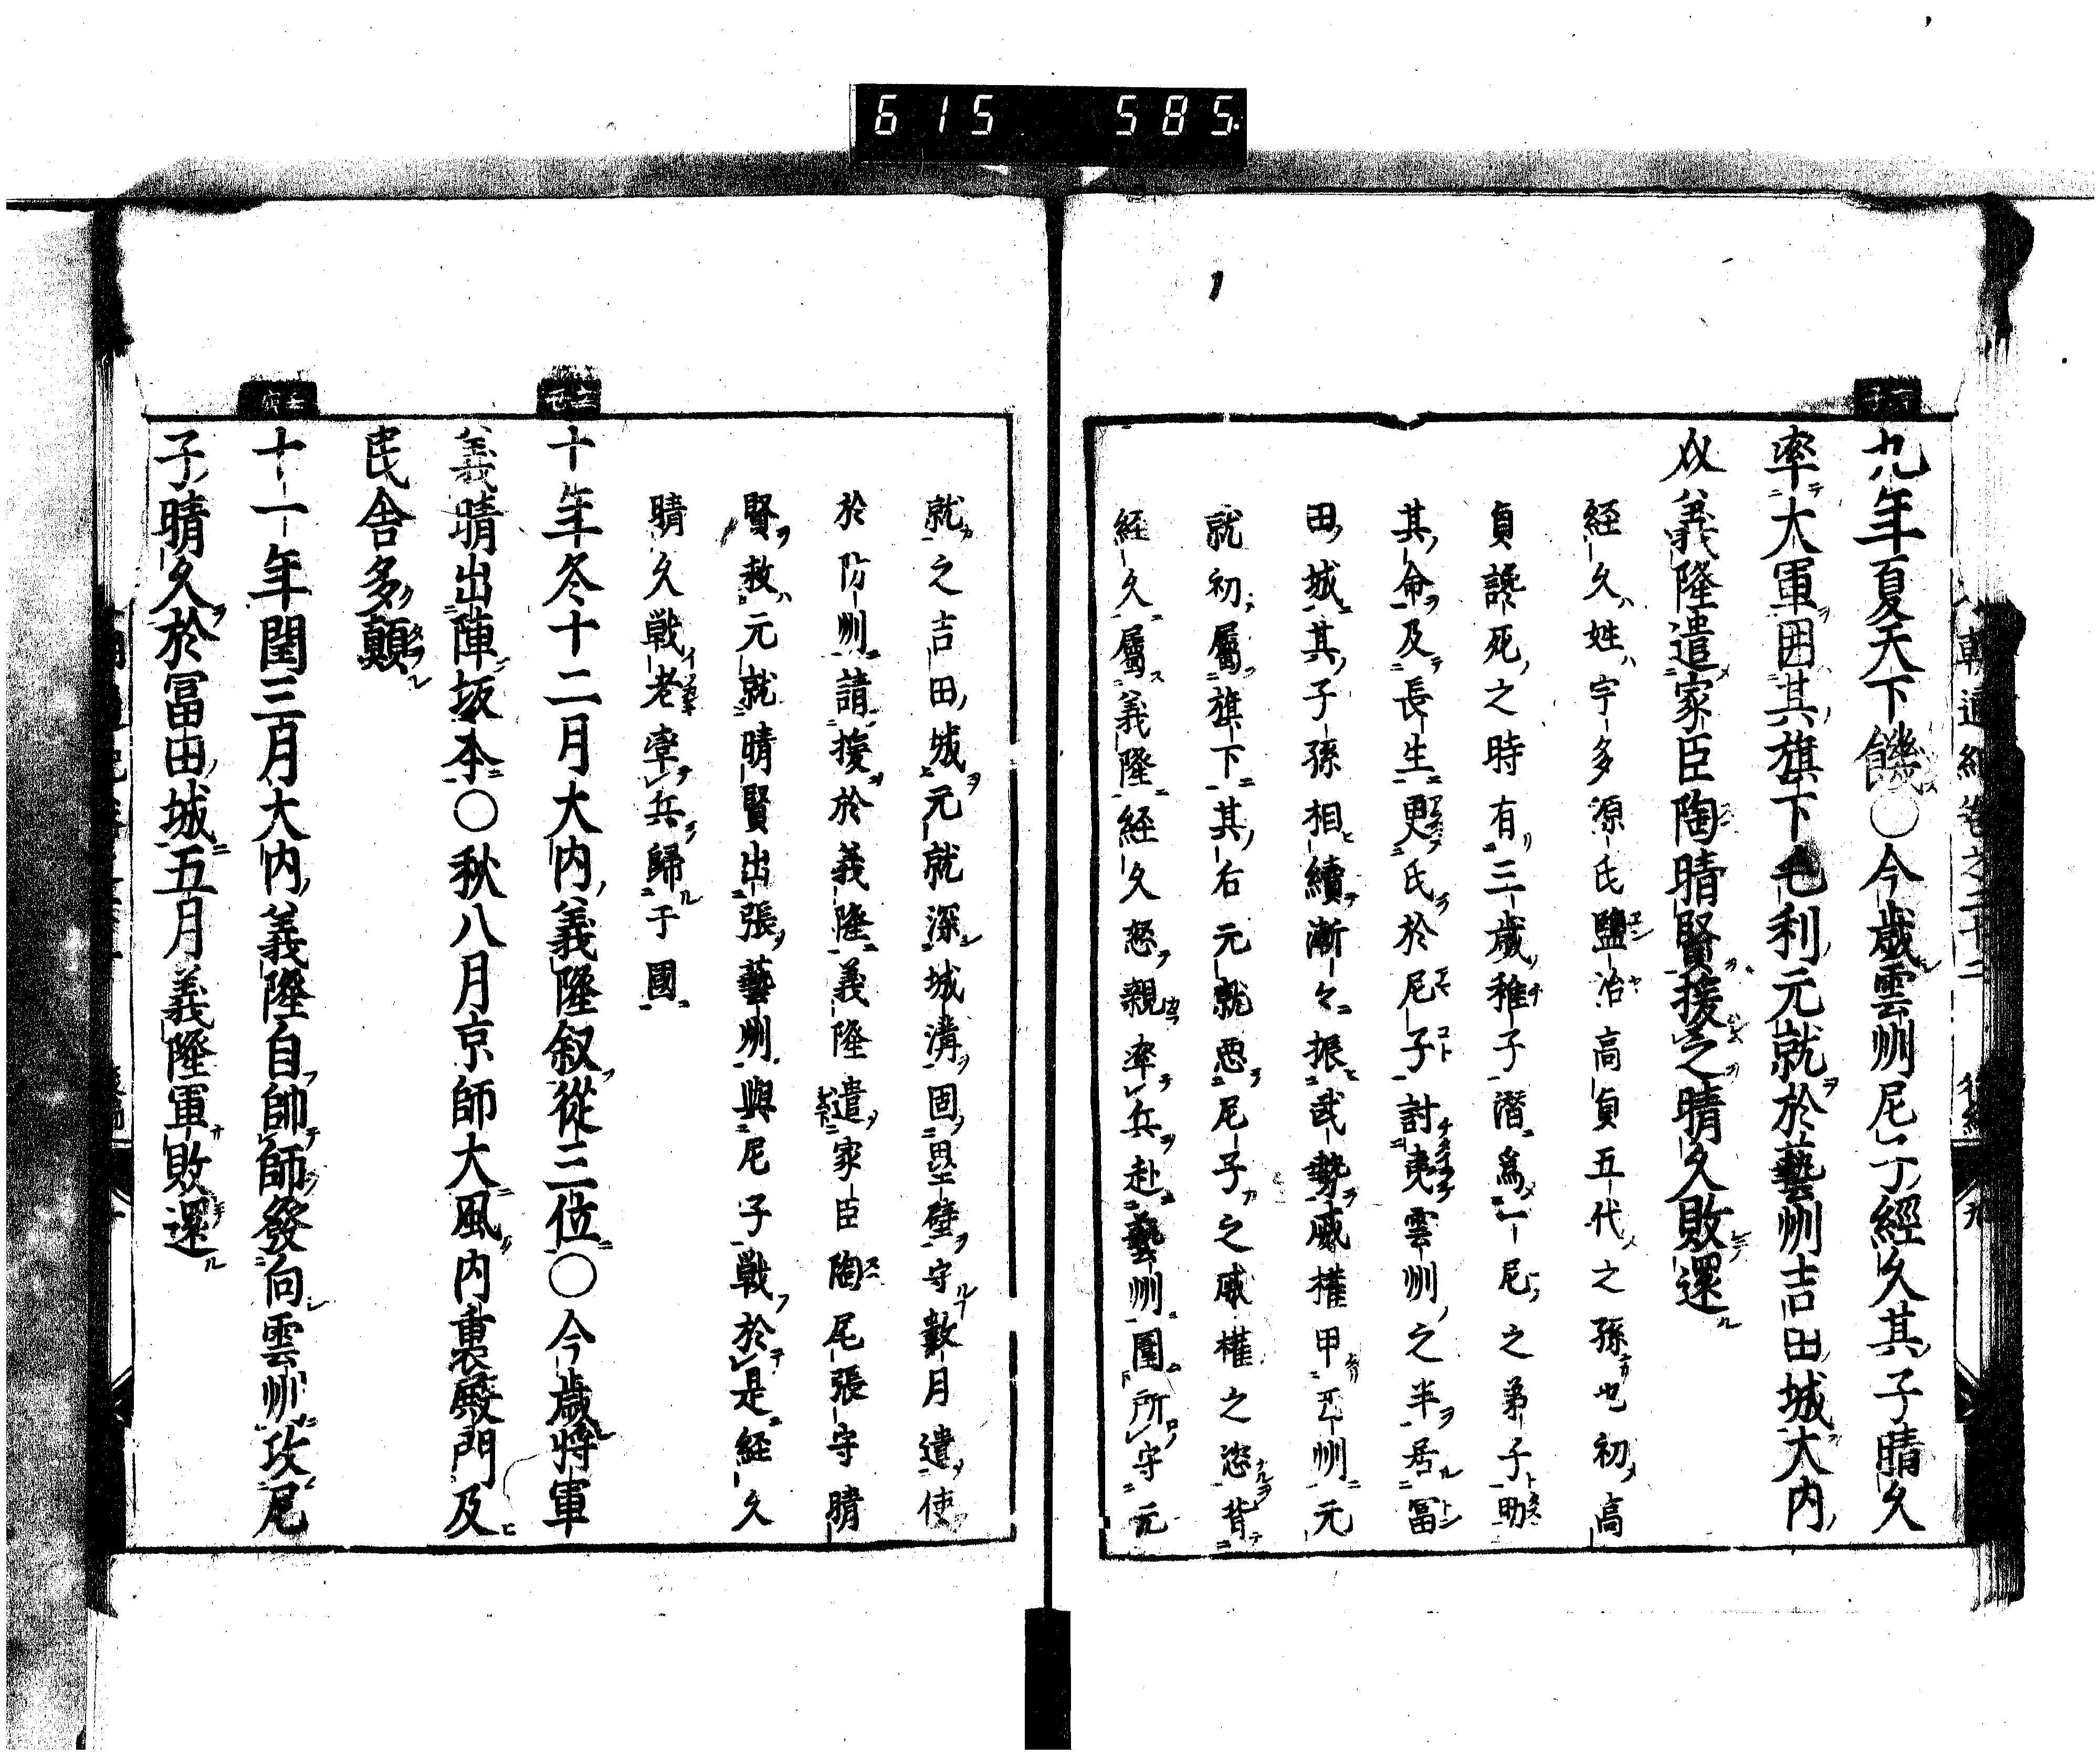 615 585
九年夏天下饑○今歲雲州尼子經久其子晴久
率大軍囲其旗下毛利元就於藝州吉田城大内
義隆遣家臣陶晴賢援之晴久敗還
経久姓宇多源氏鹽冶高貞五代之孫也初高
貞讒死之時有三歲稚子潛為一尼之弟子助
其命及長生更氏於尼子討夷雲州之半居冨
田城其子孫相續漸々振武勢威權甲于州元
就初屬旗下其右元就惡尼子之威權之恣背
経久屬義隆経久怒親率兵赴藝州圍所守元
就之吉田城元就深城溝固塁壁守數月遣使
於防州請援於義隆義隆遣家臣陶尾張守晴
賢救元就晴賢出張藝州與尼子戦於是経久
晴久戦老率兵歸于國
十年冬十二月大内義隆叙從三位○今歲將軍
義晴出陣坂本○秋八月京師大風内裏殿門及
民舎多顛
十一年閏三月大内義隆自帥師發向雲州攻尼
子晴久於冨田城五月義隆軍敗還